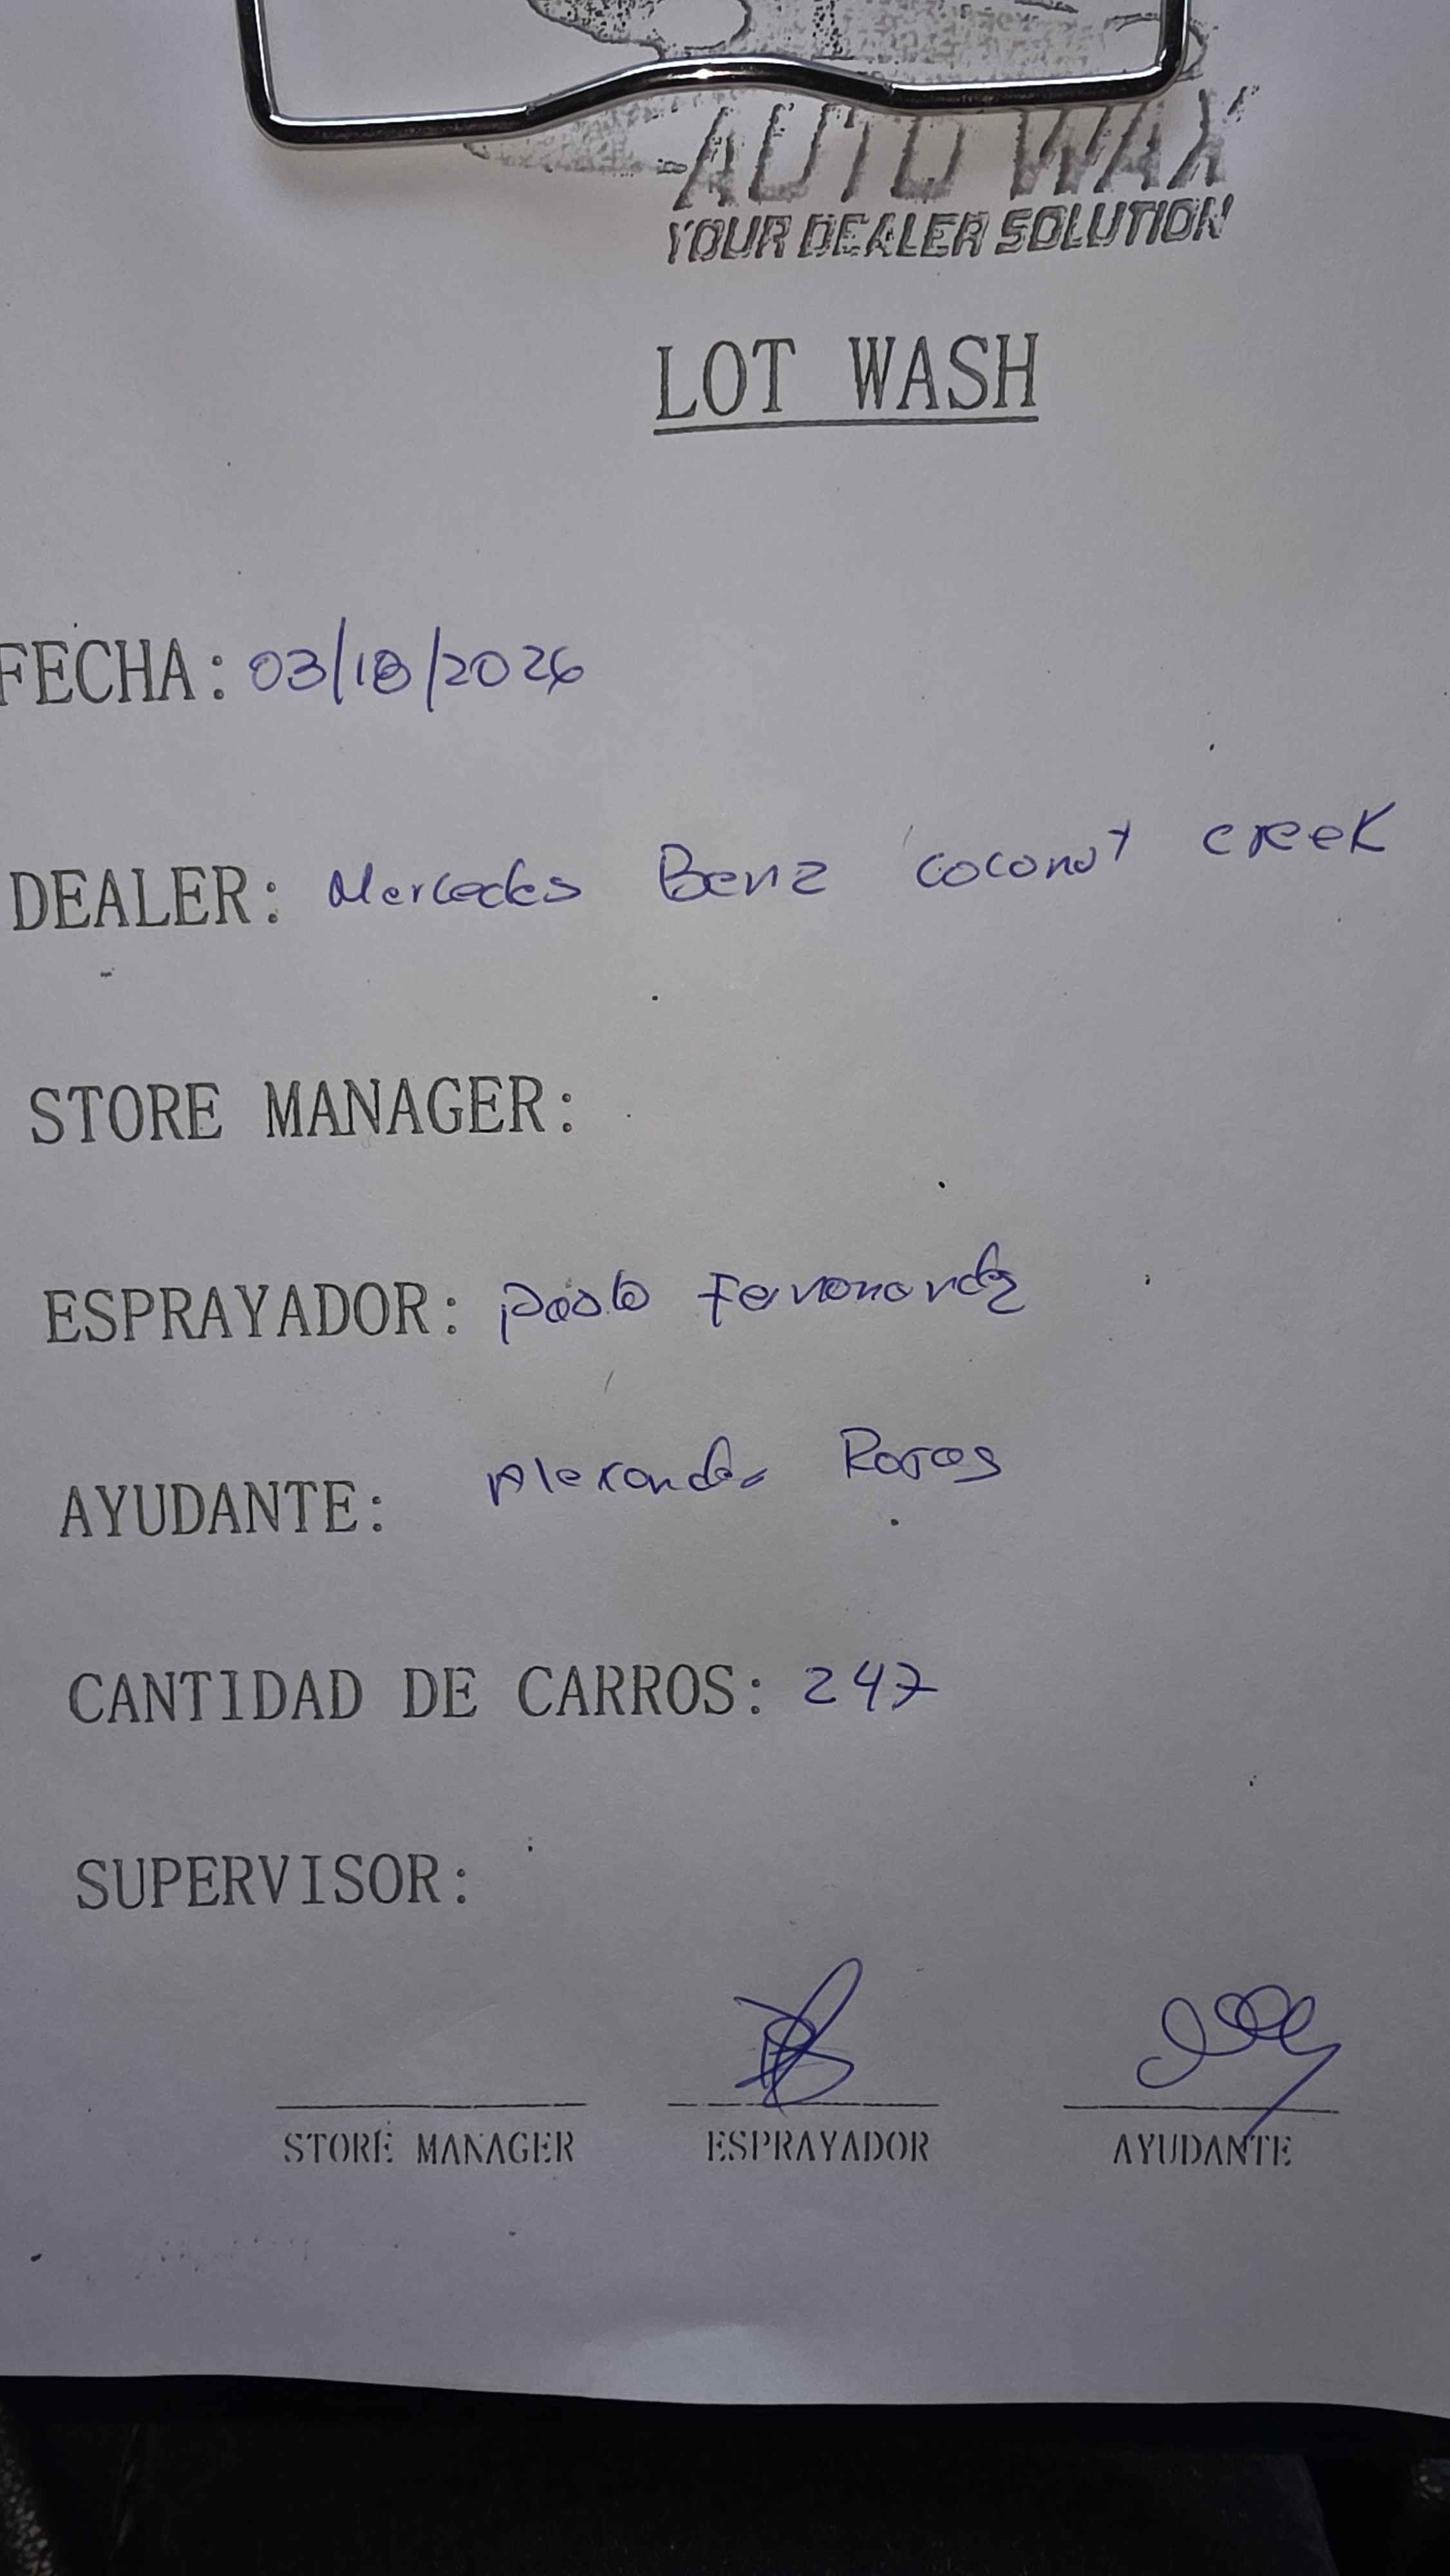 AUTO WAX
YOUR DEALER SOLUTION
LOT WASH
FECHA: 03/18/2026
DEALER: Mercedes Benz coconut creek
STORE MANAGER:
ESPRAYADOR: Pablo
AYUDANTE: Alexander Rojas
CANTIDAD DE CARROS: 247
SUPERVISOR:
STORE MANAGER ESPRAYADOR AYUDANTE